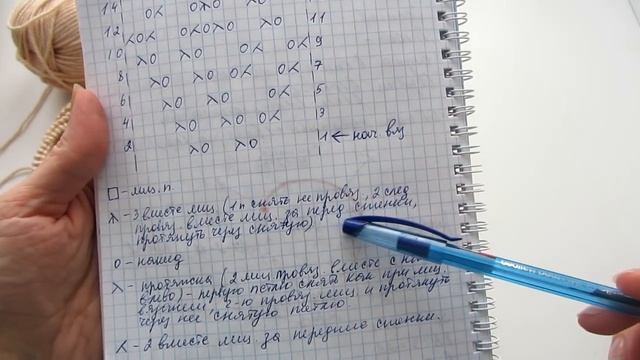 14 0< 0λ0 λ0
12 <0< 0<0λ0 λ0 11
10 λ0 λ0 0< 0< 9
8 λ0 λ0 0< 0< 7
6 λ0 λ0 0< 5
4 λ0 λ0 0< 3
2 λ0 λ0 1 ← нач вяз
□ - лиц. п.
⅄ - 3 вместе лиц (1 п снять не провяз, 2 след
провяз. вместе лиц. за перед стенки,
протянуть через снятую)
0 - накид
λ - протяжка (2 лиц. провяз. вместе с
влево) - первую петлю снять как при лиц.
вязании, 2-ю провяз. лиц. и протянуть
через нее снятую петлю.
⅄ - 2 вместе лиц. за передние стенки.